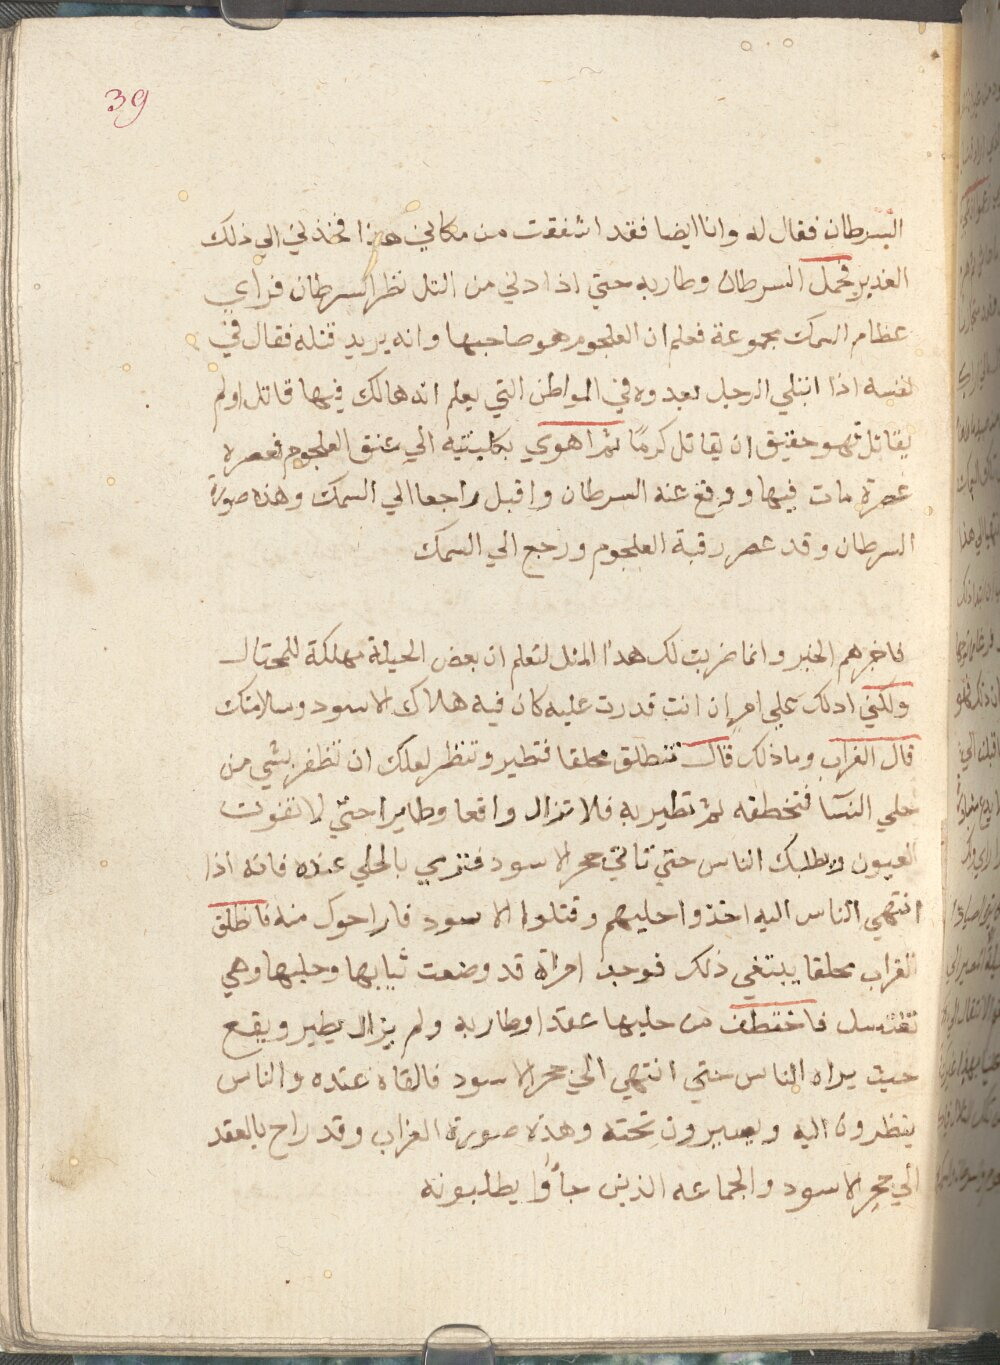 39
السرطان فقال له وانا ايضا فقد اشفقت من مكاني هذا فخذني الي ذلك
الغدير فحمل السرطان وطار به حتي اذا دني من التل نظر السرطان فراي
عظام السمك مجموعة فعلم ان العلجوم هو صاحبها وانه يريد قتله فقال في
نفسه اذا ابتلي الرجل بعدوه في المواطن التي يعلم انه هالك فيها قاتل اولم
يقاتل فهو حقيق ان يقاتل كرمًا ثم اهوي بكلبتيه الي عنق العلجوم فعصره
عصرة مات فيها ووقع عنه السرطان واقبل راجعا الي السمك وهذه صورة
السرطان وقد عصر رقبة العلجوم ورجع الي السمك
فاخبرهم الخبر وانما ضربت لك هذا المثل لتعلم ان بعض الحيلة مهلكة للمحتال
ولكني ادلك علي امر ان انت قدرت عليه كان فيه هلاك الاسود وسلامتك
قال الغراب وما ذلك قال تنطلق محلقا فتطير وتنظر لعلك ان تظفر بشي من
حلي النسا فتخطفه ثم تطير به فلا تزال واقعا وطايرا حتي لا تفوت
العيون ويطلبك الناس حتي تاتي جحر الاسود فترمي بالحلي عنده فانه اذا
انتهي الناس اليه اخذوا حليهم وقتلوا الاسود فاراحوك منه فانطلق
الغراب محلقا يبتغي ذلك فوجد امراة قد وضعت ثيابها وحليها وهي
تغتسل فاختطف من حليها عقدا وطار به ولم يزال يطير ويقع
حيث يراه الناس حتي انتهي الي جحر الاسود فالقاه عنده والناس
ينظرون اليه ويسيرون تحته وهذه صورة الغراب وقد راح بالعقد
الي جحر الاسود والجماعه الذين جاؤا يطلبونه